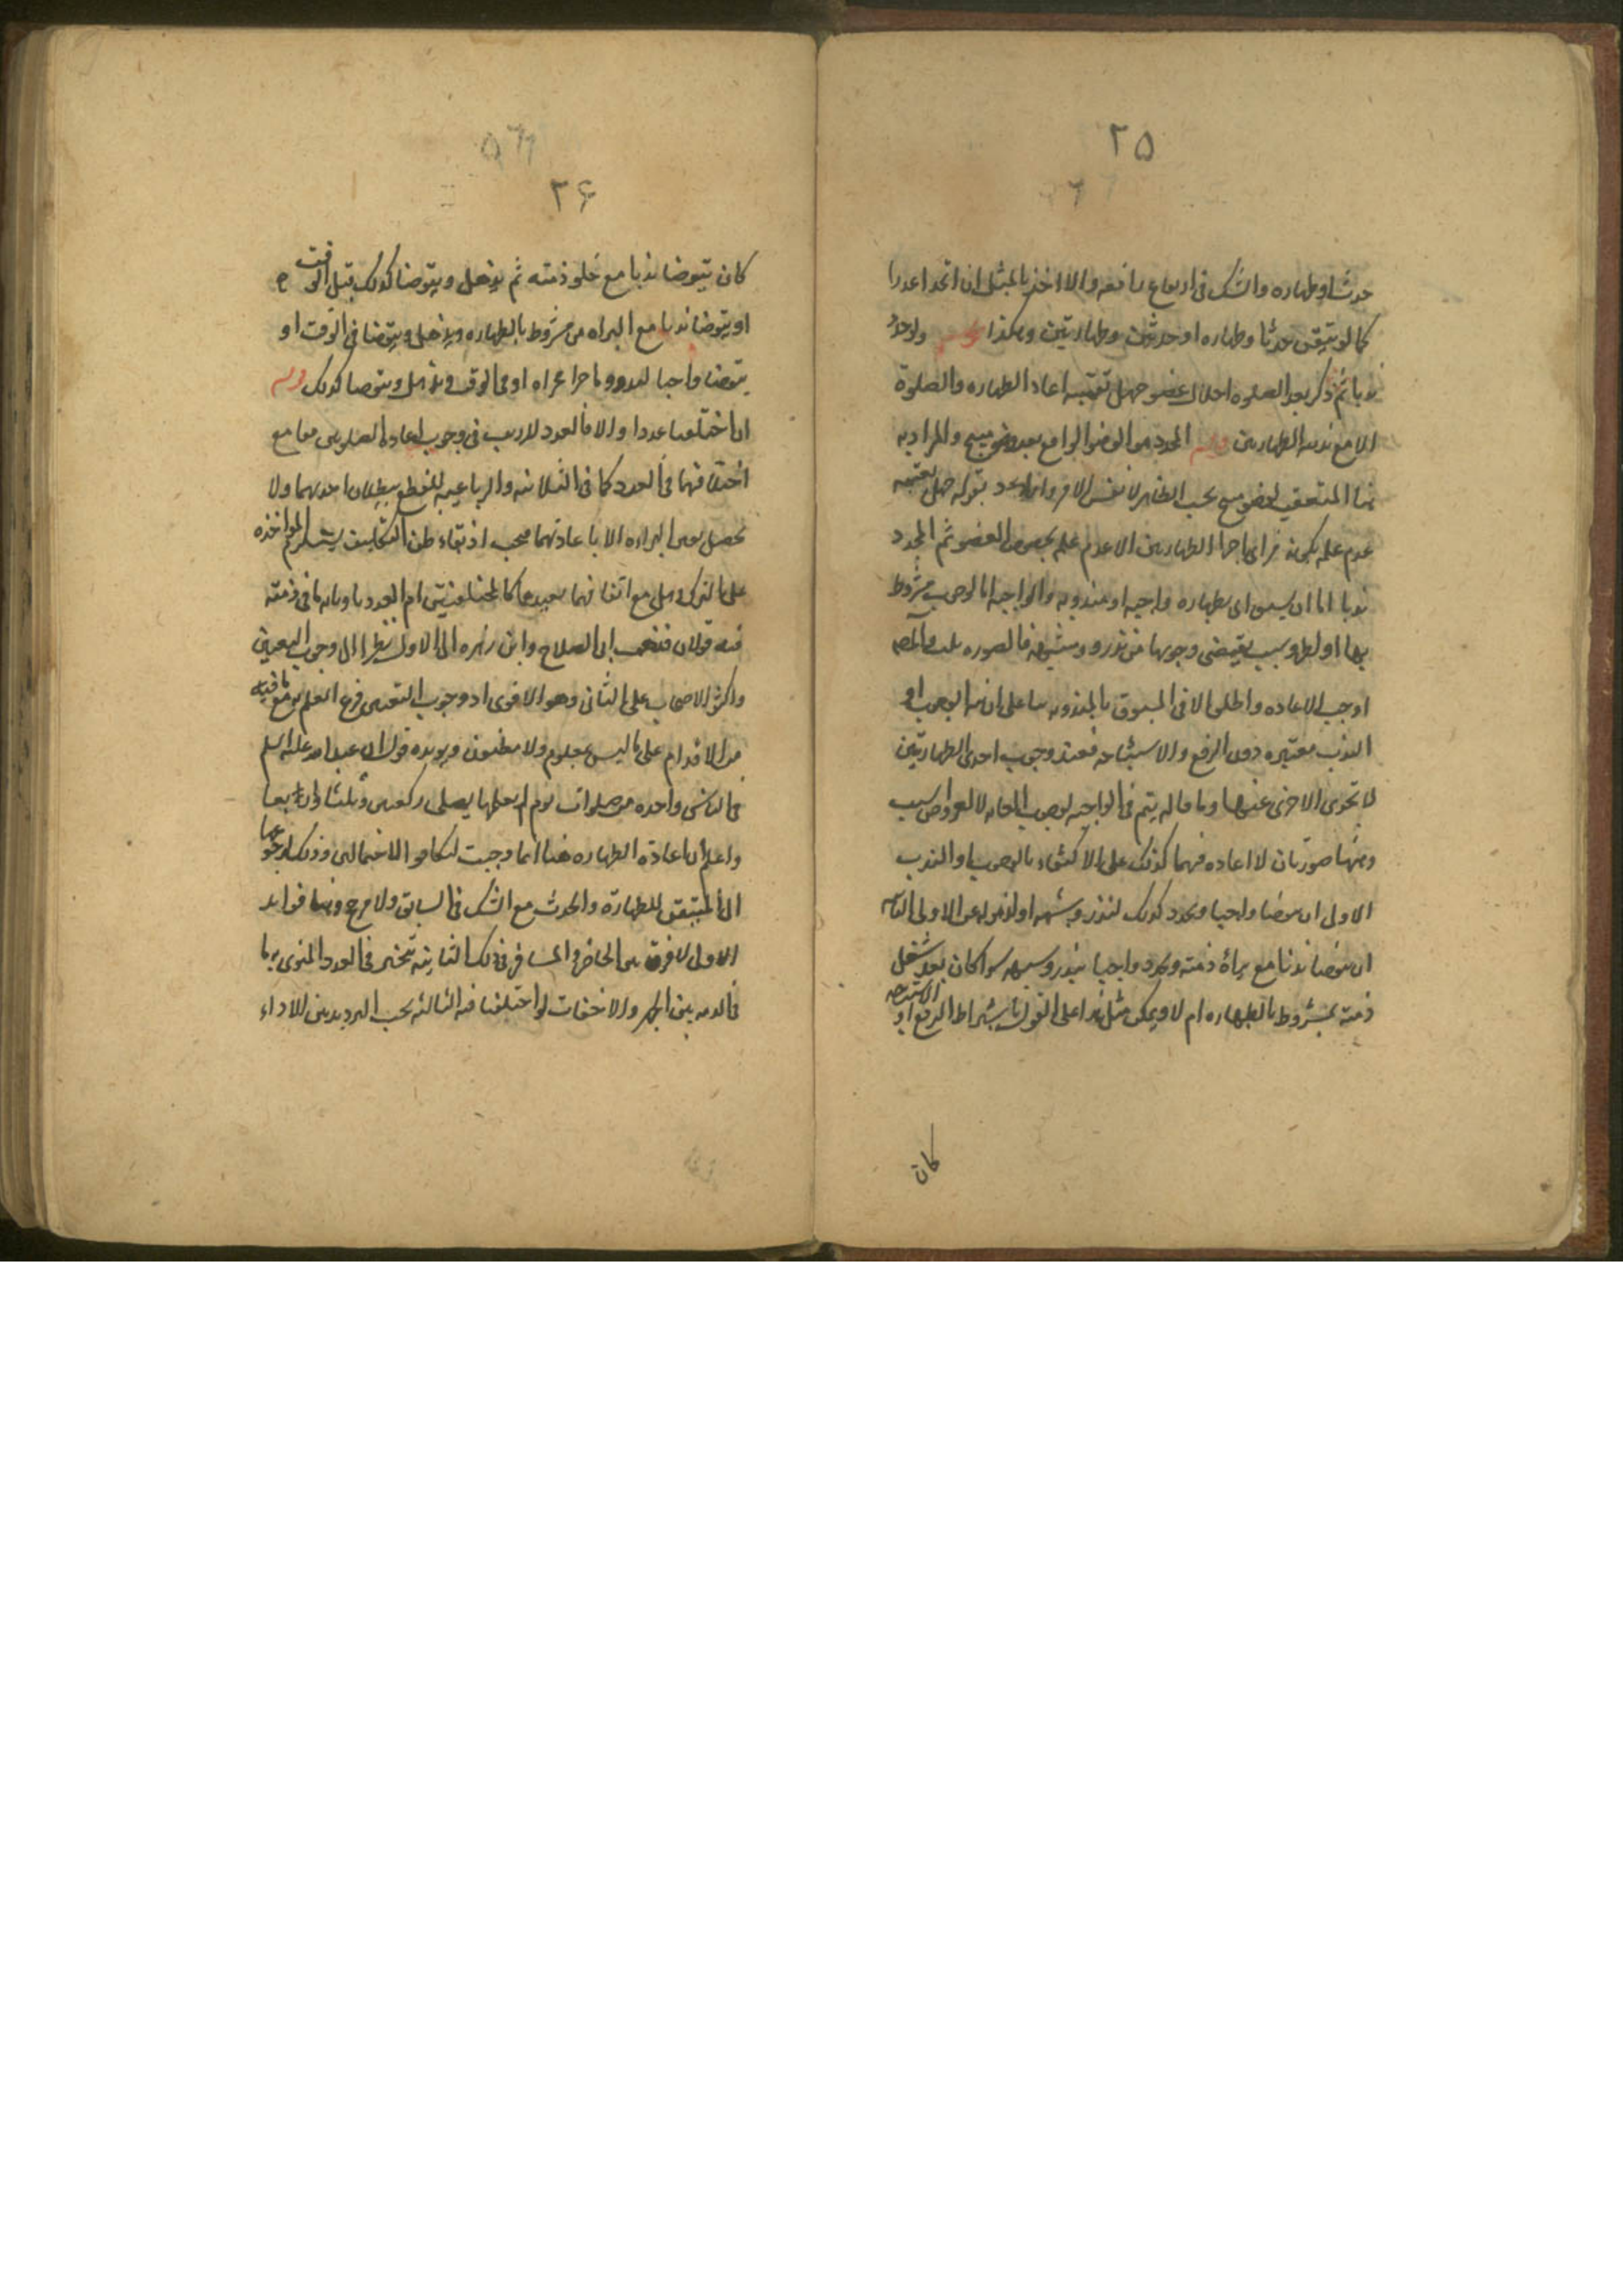 ۲۵
حدثا او طهاره والشك فى ارتفاع رافعه والا اخذ بالمثل ان اتحدا عددا
كما لو تيقن حدثا وطهاره او حدثين وطهارتين وهكذا ولو جدد
ندبا ثم ذكر بعد الصلوه اخلال عضو جهل تعقبه اعاد الطهاره والصلوة
الا مع ندبيه الطهارتين المجدد هو الوضو الواقع بعد وضو مبيح والمراد به
هنا المتعقب لوضو مبيح بحسب الظاهر لا نفس الامر بقوله جهل تعقبه
عدم علمه بكونه من اى الطهارتين لا عدم علمه بخصوص العضو ثم المجدد
ندبا اما ان يسبق اى بطهاره واجبه او مندوبه والواجبه اما لوجوب مشروط
بها او لسبب يقتضى وجوبها من نذر وشبهه فالصوره ثلث
اوجب الاعاده واطلق الا فى المسبوق بالمندوبه بنا على ان نية الوجوب او
الندب معتبره دون الرفع والاستباحه فعند وجوب احدى الطهارتين
لا تجزى الاخرى عنها وما قاله يتم فى الواجبه لوجوب
وهنا صورتان لا اعاده فيهما كذلك على الاكتفاء بالوجوب او الندب
الاولى ان يتوضا واجبا ويجدد كذلك لنذر وشبهه او الاولى الثانيه
ان يتوضا ندبا مع براة ذمته ويجدد واجبا بنذر وشبهه سوا كان بعد شغل
ذمته بمشروط بالطهاره ام لا ويمكن مثل هذا على القول باشتراط الرفع او الاستباحه
كان
۲۶
كان يتوضا ندبا مع خلو ذمته ثم يذهل ويتوضا كذلك قبل الوقت
او يتوضا ندبا مع البراه من مشروط بالطهاره ويذهل ويتوضا فى الوقت او
يتوضا واجبا او فى الوقت ويذهل ويتوضا كذلك
ان اختلفتا عددا والا فالعدد لا ريب فى وجوب اعاده الصلوتين معا مع
اختلافهما فى العدد كما فى الثلاثيه والرباعيه للقطع ببطلان احديهما ولا
يحصل يقين البراءه الا باعادتهما فيجب اذ بقاء ظن التكليف يستلزم المواخذه
على الترك وهل مع اتفاقهما يعيدهما كالمختلفتين ام العدد ناويا به ما فى ذمته
فيه قولان فذهب ابو الصلاح وابن زهره الى الاول نظرا الى وجوب التعيين
واكثر الاصحاب على الثانى وهو الاقوى اذ وجوب التعيين فرع العلم مع ما فيه
من الاقدام على ما ليس بمعلوم ولا مظنون ويويده قول ابى عبد الله عليه السلم
فى الناسى واحده من صلوات يوم لم يعلمها يصلى ركعتين وثلثا واربعا
واعلم ان اعادة الطهاره هنا انما وجبت لتكافو الاحتمالين وذلك لرجوعهما
الى المتيقن للطهارة والحدث مع الشك فى السابق ولا مرجح وهنا فوايد
الاول لا فرق بين الحاضر والمسافر فى ذلك الثانيه يتخير فى العدد المنوى به ما
فى الذمه بين الجهر والاخفات لو اختلفتا فيه الثالثه يجب الترديد بين الاداء